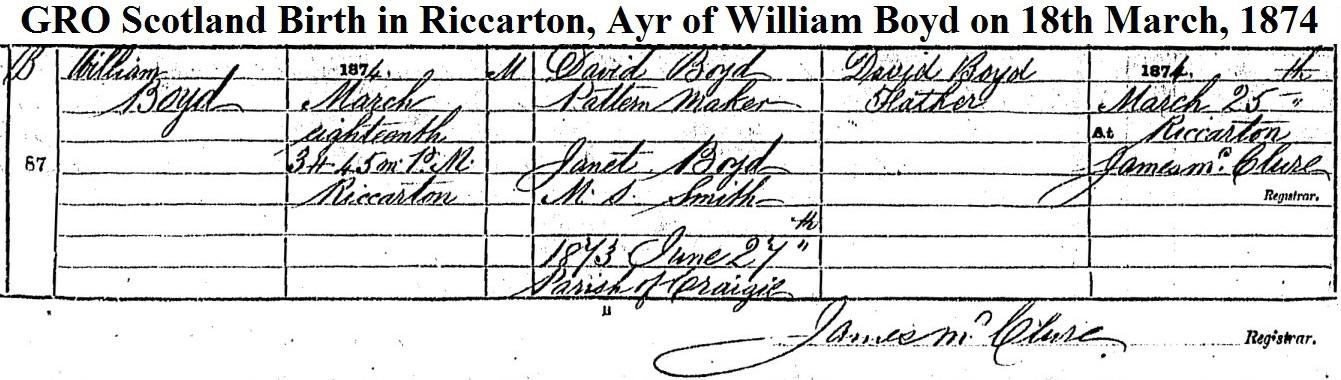 GRO Scotland Birth in Riccarton, Ayr of William Boyd on 18th March, 1874
B
87
William
Boyd
1874.
March
eighteenth
3 H 45 m P. M
Riccarton
M
David Boyd
Pattern Maker
Janet Boyd
M. S. Smith
1873 June 27th "
Parish of Craigie
David Boyd
Father
1874. th
March 25 "
At Riccarton
James Mc. Clure
Registrar.
"
James Mc Clure Registrar.